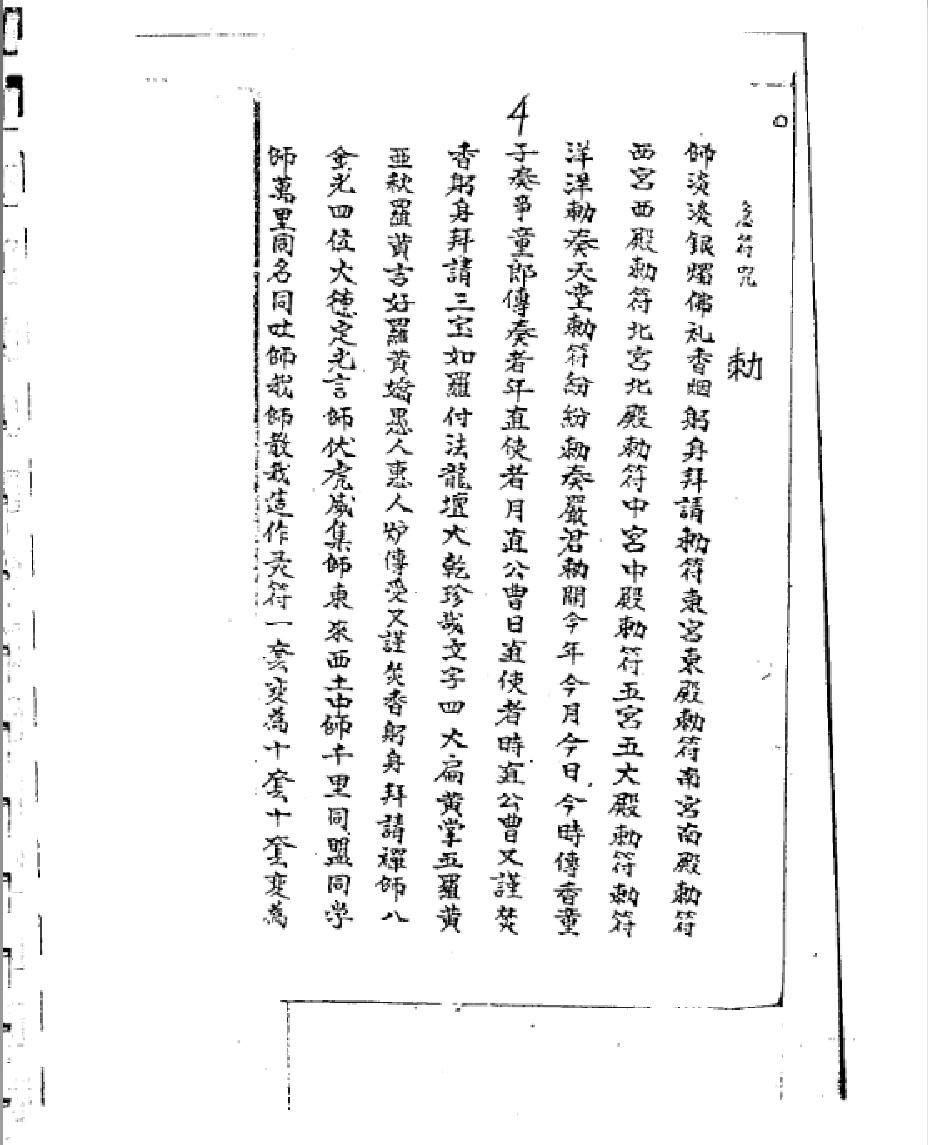 急符咒
勅
師淡淡銀燭佛礼香烟躬身拜請勅符東宮東殿勅符南宮南殿勅符
西宮西殿勅符北宮北殿勅符中宮中殿勅符五宮五大殿勅符勅符
洋洋勅奏天堂勅符紛紛勅奏嚴君勅開今年今月今日今時傳香童
4
子奏事童郎傳奏者年直使者月直公曹日直使者時直公曹又謹焚
香躬身拜請三宝如羅付法龍壇大乾珍哉文字四大扁黄掌五羅黄
亞秋羅黄吉好羅黄嬌愚人惠人炉傳受又謹焚香躬身拜請禪師八
金光四位大德定光言師伏虎威集師東來西土中師千里同盟同学
師萬里同名同吐師我師教我造作灵符一套变為十套十套变為